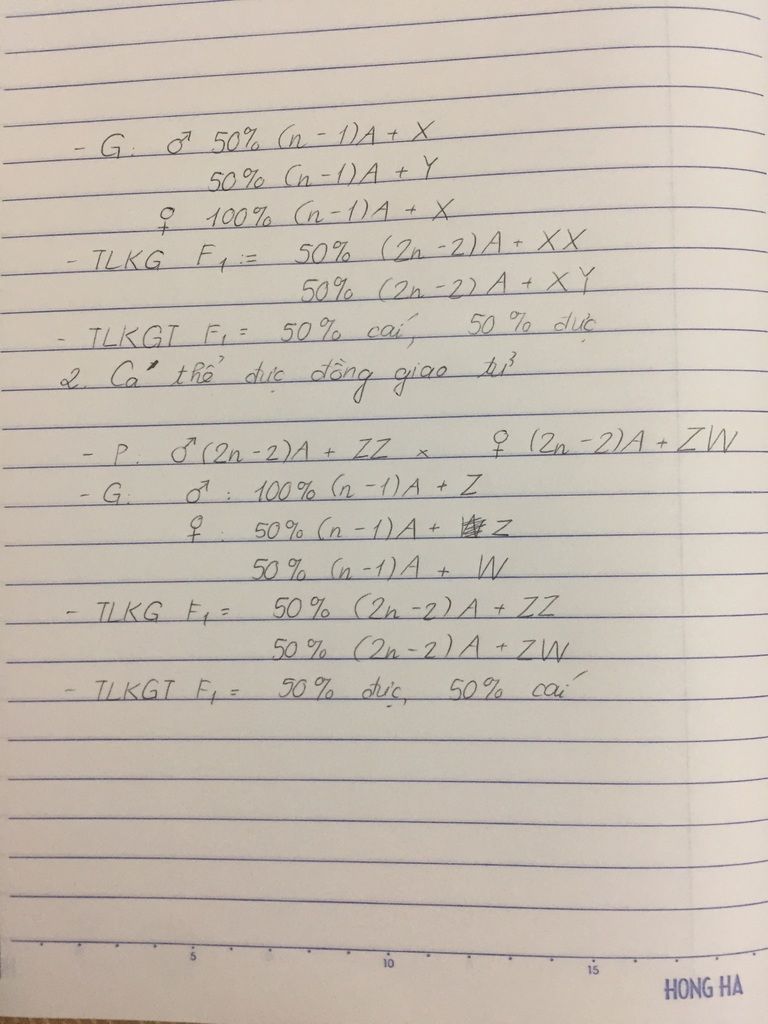 - G: ♂ 50% (n-1)A + X
50% (n-1)A + Y
♀ 100% (n-1)A + X
- TLKG F₁ := 50% (2n-2)A + XX
50% (2n-2)A + XY
- TLKGT F₁ = 50% cái, 50% đực
2. Cá thể đực đồng giao tử
- P: ♂(2n-2)A + ZZ × ♀ (2n-2)A + ZW
- G: ♂ : 100% (n-1)A + Z
♀ : 50% (n-1)A + Z
50% (n-1)A + W
- TLKG F₁ = 50% (2n-2)A + ZZ
50% (2n-2)A + ZW
- TLKGT F₁ = 50% đực, 50% cái
5 10 15
HONG HA